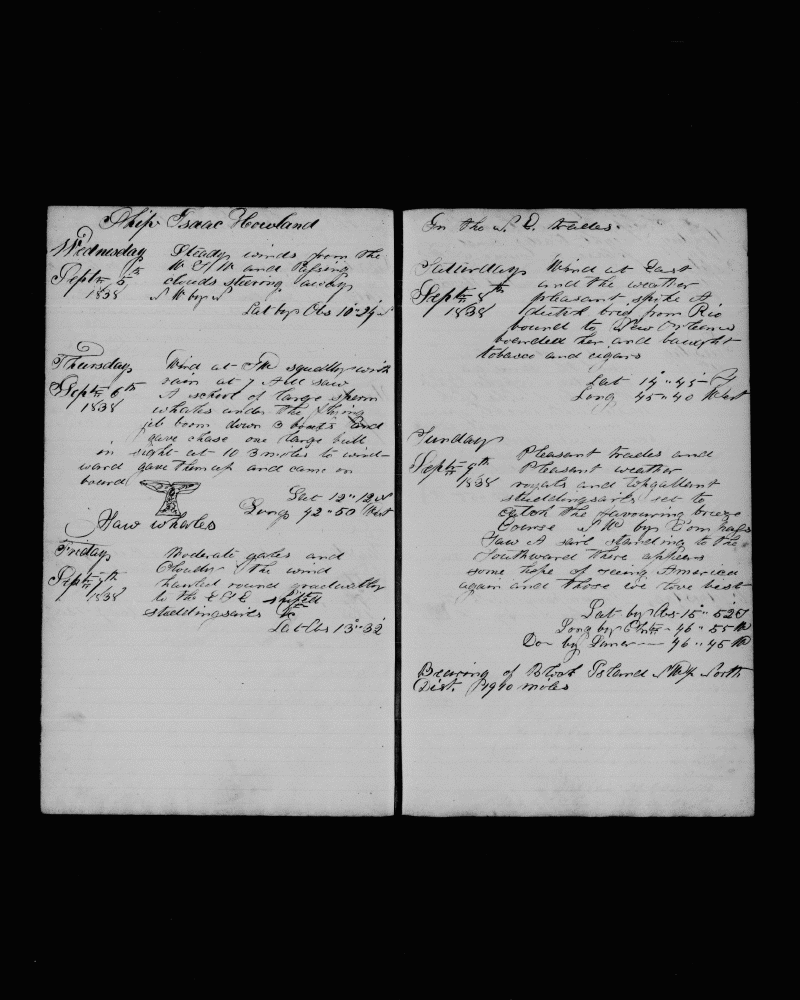 Ship Isaac Howland
Wednesday Steady winds from the
Septr 5th W S W and Passing
1838 clouds steering away
N W by N
Lat by Obs 10"24 N
Thursday Wind at SW squally with
Septr 6th rain at 7 AM saw
1838 A school of large sperm
whales under the flying
jib boom down 3 boats and
gave chase one large bull
in sight at 10 3 miles to wind-
ward gave them up and came on
board
Lat 12"12 N
Long 42"50 West
Saw whales
Friday Moderate gales and
Septr 7th Cloudy the wind
1838 hauled round gradually
to the E S E shifted
studdingsails
Lat Obs 13"32
In the N. E. trades.
Saturday Wind at East
Septr 8th and the weather
1838 pleasant, spoke A
dutch brig from Rio
bound to New Orleans
boarded her and baught
tobacco and cigars
Lat 14"45
Long 45"40 West
Sunday
Septr 9th Pleasant trades and
1838 Pleasant weather
royals and topgallant
studdingsails set to
catch the favouring breeze
Course N W by Compass
Saw A sail standing to the
Southward there appears
some hope of seeing American
again and those we love best
Lat by Obs 15"52
Long by Chr 46"55 W
Do by Lunar 46"45 W
Bearing of Block Island North
Dist. 1940 miles